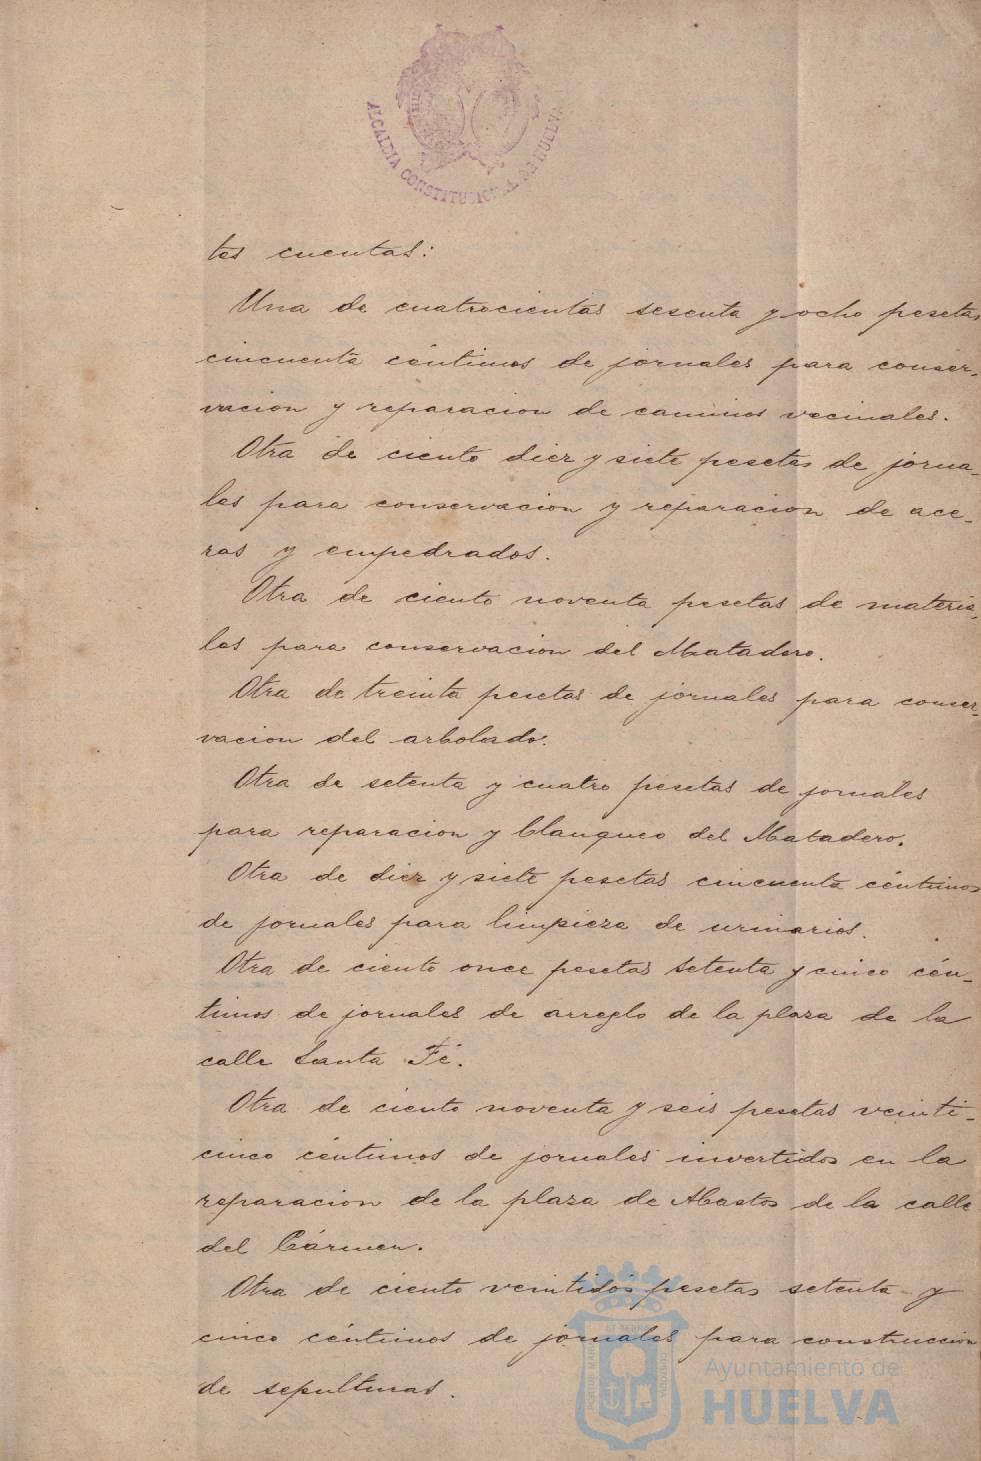 ALCALDIA CONSTITUCIONAL DE HUELVA
tes cuentas:
Una de cuatrocientas sesenta y ocho pesetas
cincuenta céntimos de jornales para conser-
vacion y reparacion de caminos vecinales.
Otra de ciento diez y siete pesetas de jorna-
les para conservacion y reparacion de ace-
ras y empedrados.
Otra de ciento noventa pesetas de materia-
les para conservacion del Matadero.
Otra de treinta pesetas de jornales para conser-
vacion del arbolado.
Otra de setenta y cuatro pesetas de jornales
para reparacion y blanqueo del Matadero.
Otra de diez y siete pesetas cincuenta céntimos
de jornales para limpieza de urinarios.
Otra de ciento once pesetas setenta y cinco cén-
timos de jornales de arreglo de la plaza de la
calle Santa Fé.
Otra de ciento noventa y seis pesetas veinti-
cinco céntimos de jornales invertidos en la
reparacion de la plaza de Abastos de la calle
del Cármen.
Otra de ciento veintidos pesetas setenta y
cinco céntimos de jornales para construccion
de sepulturas.
Ayuntamiento de
HUELVA